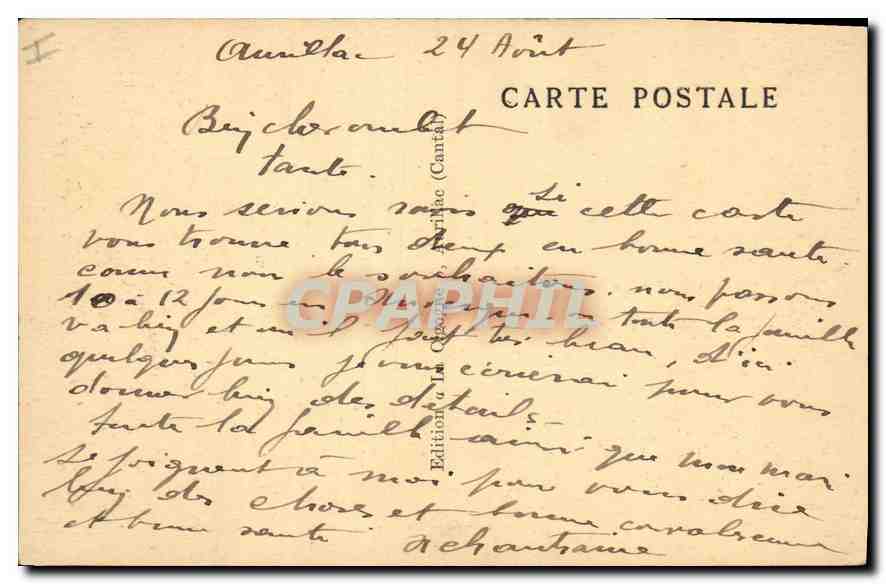 Aurillac 24 Août
CARTE POSTALE
Bien cher oncle et
tante.
Nous serions ravis si cette carte
vous trouve tous deux en bonne santé
comme nous le souhaitons. nous passons
10 à 12 jours en Auvergne toute la famille
va bien et ici il fait très beau, d'ici
quelques jours je vous écrirai pour vous
donner bien des détails
toute la famille ainsi que mon mari
se joignent à moi pour vous dire
bien des choses et bonne convalescence
et bonne santé
Edition "La Cigogne", Aurillac (Cantal)
CPAPHIL